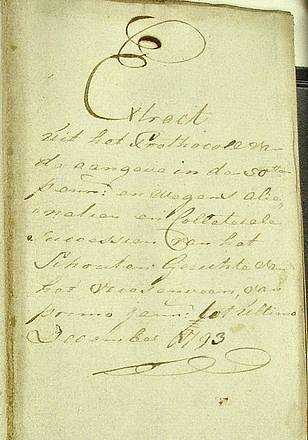 Extract
Uit het Prothocoll van
de aangeve in den 50sten
penn: en wegens alie-
natien en Collaterale
Successien van het
Schouten Gerichte van
het Veesenveen, van
primo janu: tot Ultimo
December 1793